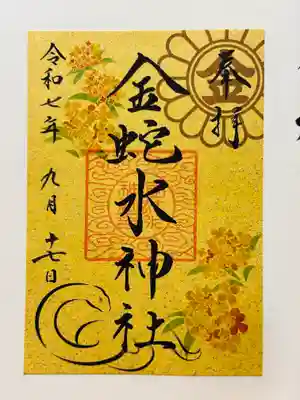 奉拝
金蛇水神社
令和七年 九月 十七日